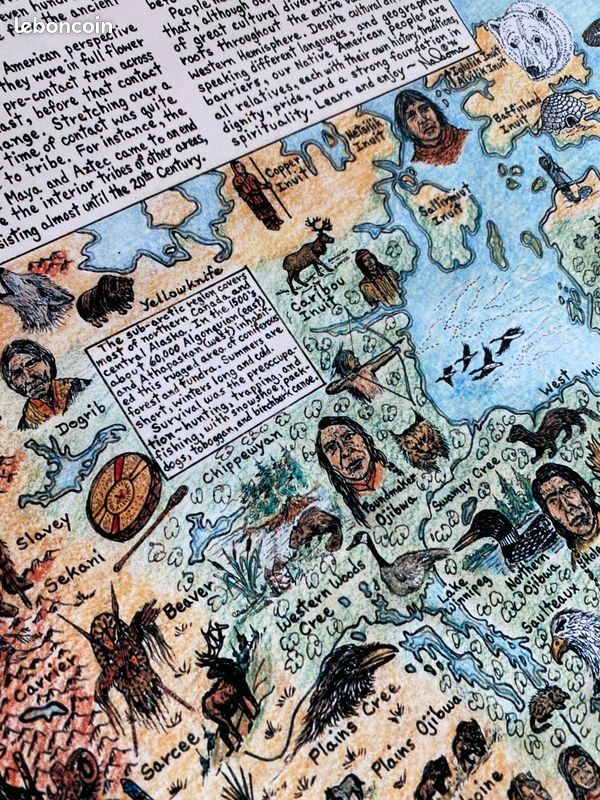 leboncoin
even human
ancient
American perspective
they were in full flower
pre-contact from across
ast, before that contact
ange. Stretching over a
time of contact was quite
to tribe. For instance, the
Maya and Aztec came to an end
e the interior tribes of other areas,
isting almost until the 20th Century.
People
that, although our
of great cultural diver
roots throughout the entire
Western Hemisphere. Despite cultural
speaking different languages, and geographic
barriers, our Native American peoples are
all relatives, each with their own history, traditions
dignity, pride, and a strong foundation in
spirituality. Learn and enjoy ~
Iglulik Inuit
Baffinland
Inuit
Netsilik
Inuit
Copper
Inuit
Sallirmiut
Inuit
Caribou
Inuit
Yellowknife
The sub-arctic region covers
most of northern Canada and
central Alaska. In the 1500's
about 60,000 Algonquian (east)
and Athapaskan (west) inhabit-
ed this huge area of coniferous
forest and tundra. Summers are
short, winters long and cold.
Survival was the preoccupa-
tion - hunting, trapping, and
fishing with snowshoe, pack-
dogs, toboggan, and birchbark canoe.
Dogrib
Chippewyan
West Mai
Slavey
Poundmaker
Ojibwa
Swampy Cree
Sekani
Beaver
Western Woods
Cree
Lake
Winnipeg
Northern
Ojibwa
Saulteaux
Carrier
Sarcee
Plains Cree
Plains Ojibwa
oine